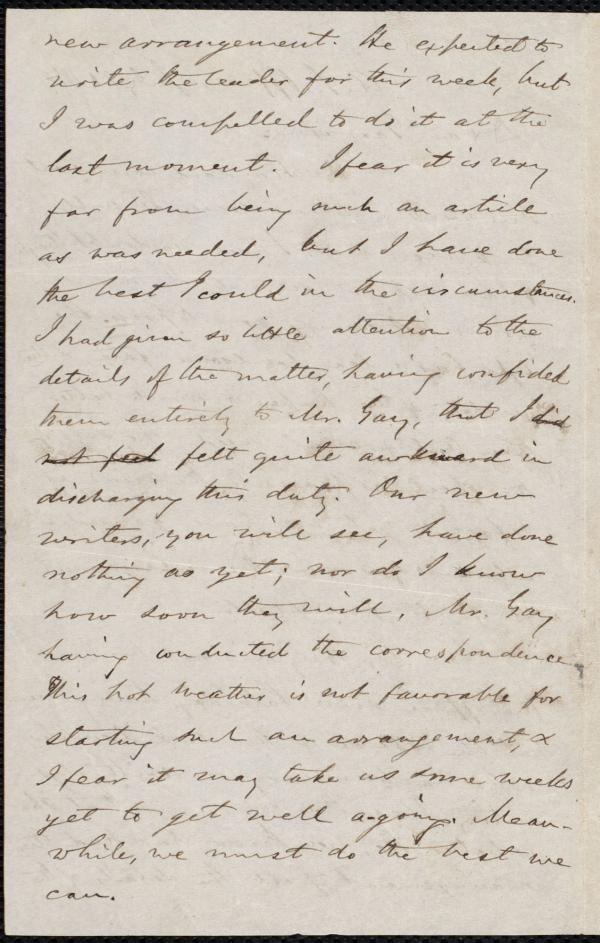 new arrangement. He expected to
write the leader for this week, but
I was compelled to do it at the
last moment. I fear it is very
far from being such an article
as was needed, but I have done
the best I could in the circumstances.
I had given so little attention to the
details of the matter, having confided
them entirely to Mr. Gay, that I did
not feel felt quite awkward in
discharging this duty. Our new
writers, you will see, have done
nothing as yet; nor do I know
how soon they will, Mr. Gay
having conducted the correspondence.
This hot weather is not favorable for
starting such an arrangement, &
I fear it may take us some weeks
yet to get well a-going. Mean-
while, we must do the best we
can.